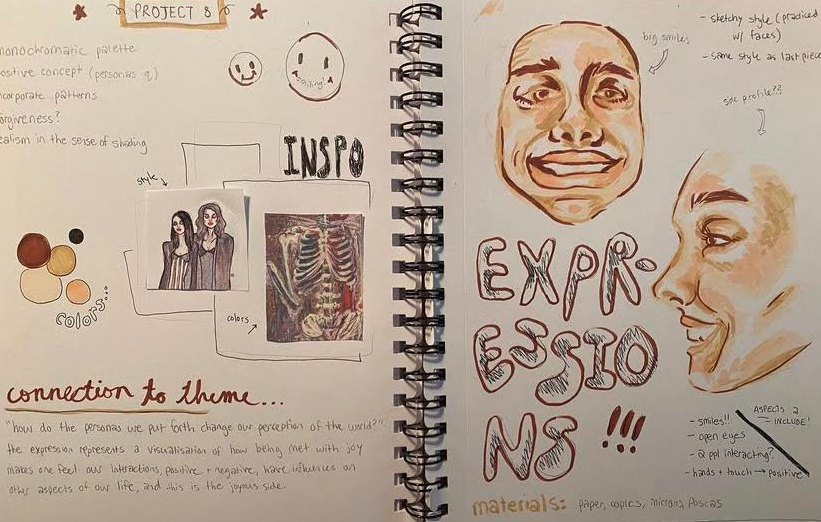 PROJECT 8
monochromatic palette
positive concept (personas q.)
incorporate patterns
forgiveness?
realism in the sense of shading
smiling!
INSPO
style
colors:
colors
connection to theme...
"how do the personas we put forth change our perception of the world?"
the expression represents a visualisation of how being met with joy
makes one feel. our interactions, positive + negative, have influences on
other aspects of our life, and this is the joyous side.
big smiles
- sketchy style (practiced
w/ faces)
- same style as last piece
side profile??
EXPR-
ESSIO
NS !!!
ASPECTS 2
INCLUDE!
- smiles!!
- open eyes
- 2 ppl interacting?
- hands + touch → positive
materials: paper, copics, microns, poscas